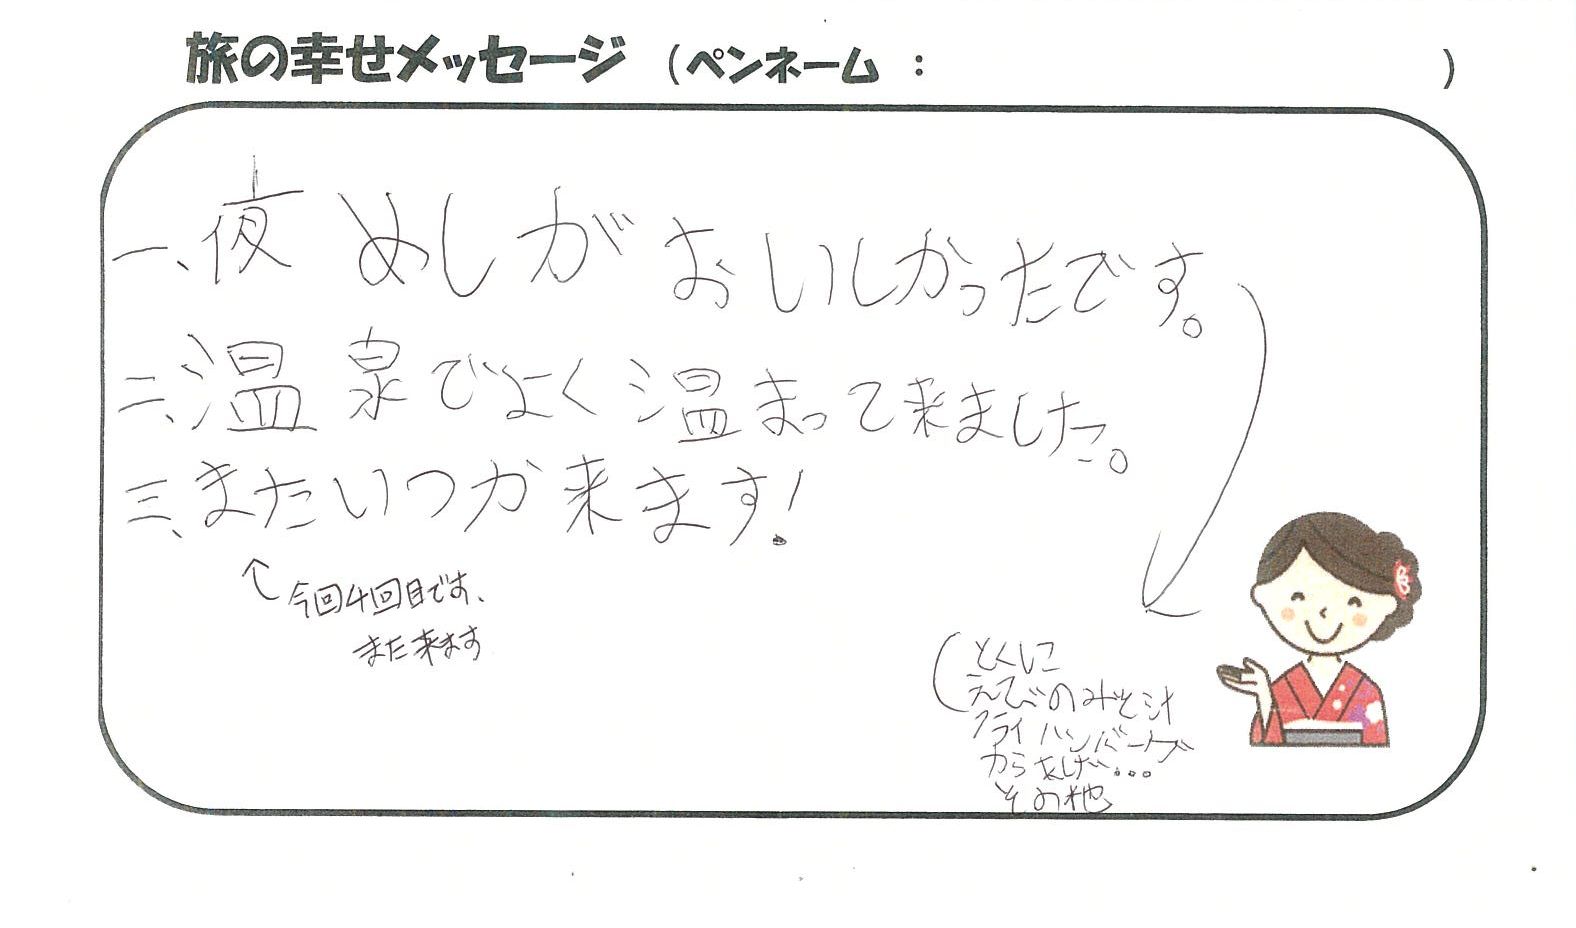 旅の幸せメッセージ (ペンネーム : )
一、夜めしがおいしかったです。
二、温泉でよく温まって来ました。
三、またいつか来ます!
今回4回目です、
また来ます
(とくに
えびのみそ汁
フライ ハンバーグ
からあげ...
その他